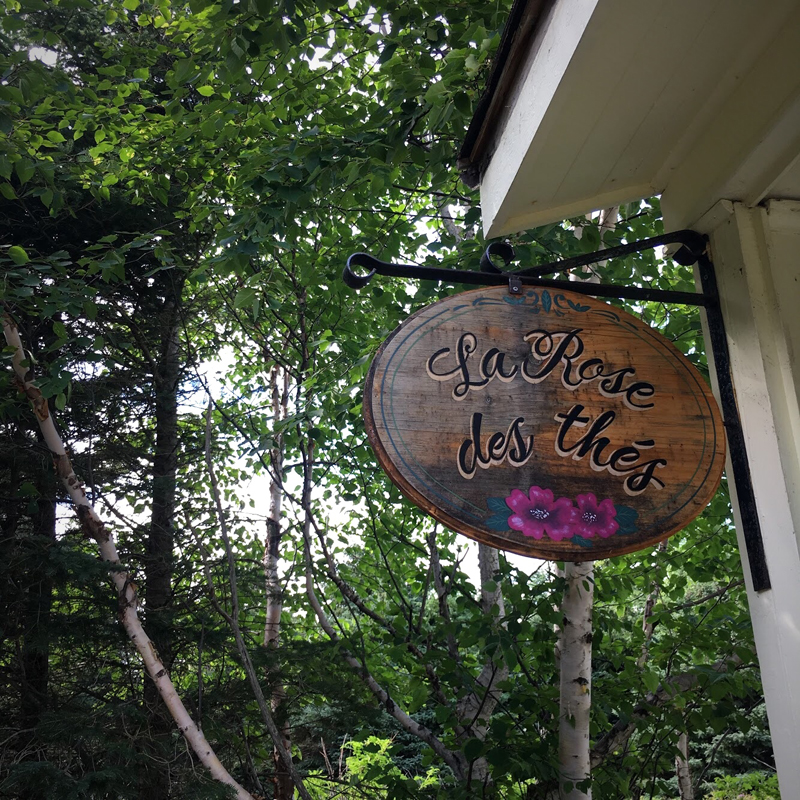 La Rose
des thés